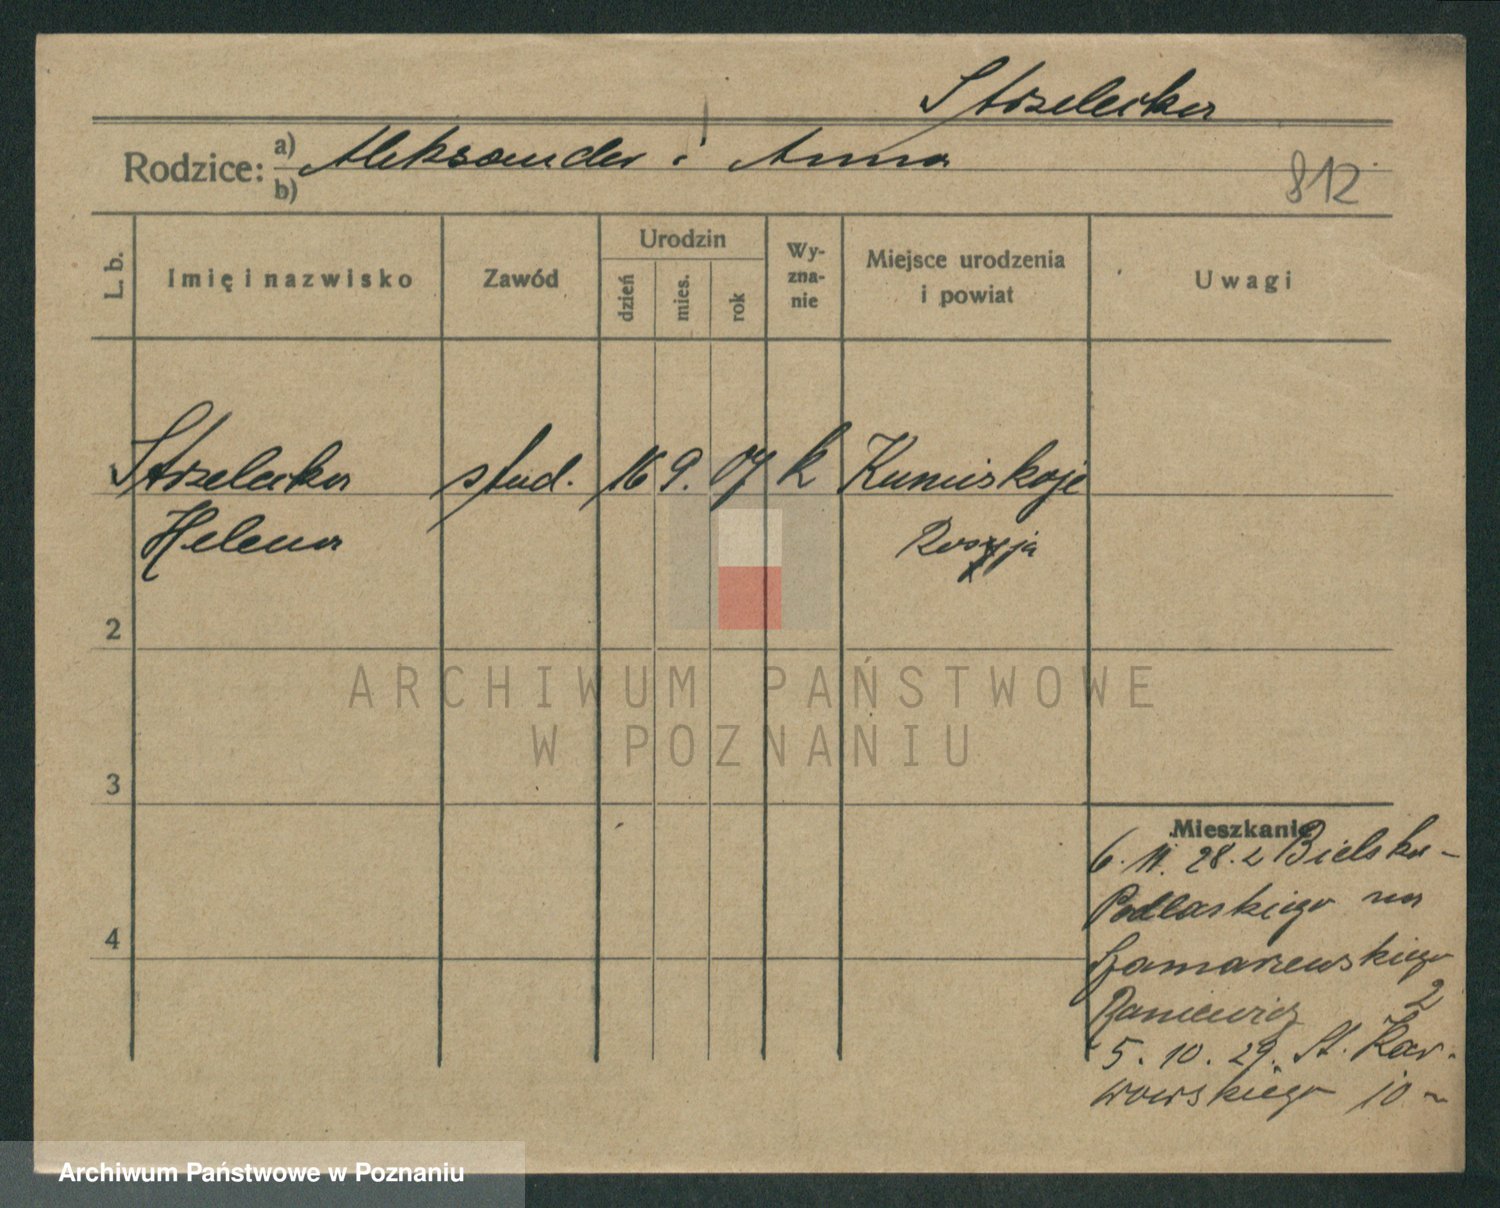 Strzelecka
Rodzice: a) Aleksander i Anna
b)
812
L. b. Imię i nazwisko Zawód Urodzin dzień mies. rok Wyznanie Miejsce urodzenia i powiat Uwagi
Strzelecka stud. 16 9. 07 k Kumiskoje
Helena Rosja
2
3
4
Mieszkanie
6. 11. 28. z Bielska-
Podlaskiego na
Szamarzewskiego
2
5. 10. 29. St. Kar-
wowskiego 10
ARCHIWUM PAŃSTWOWE
W POZNANIU
Archiwum Państwowe w Poznaniu